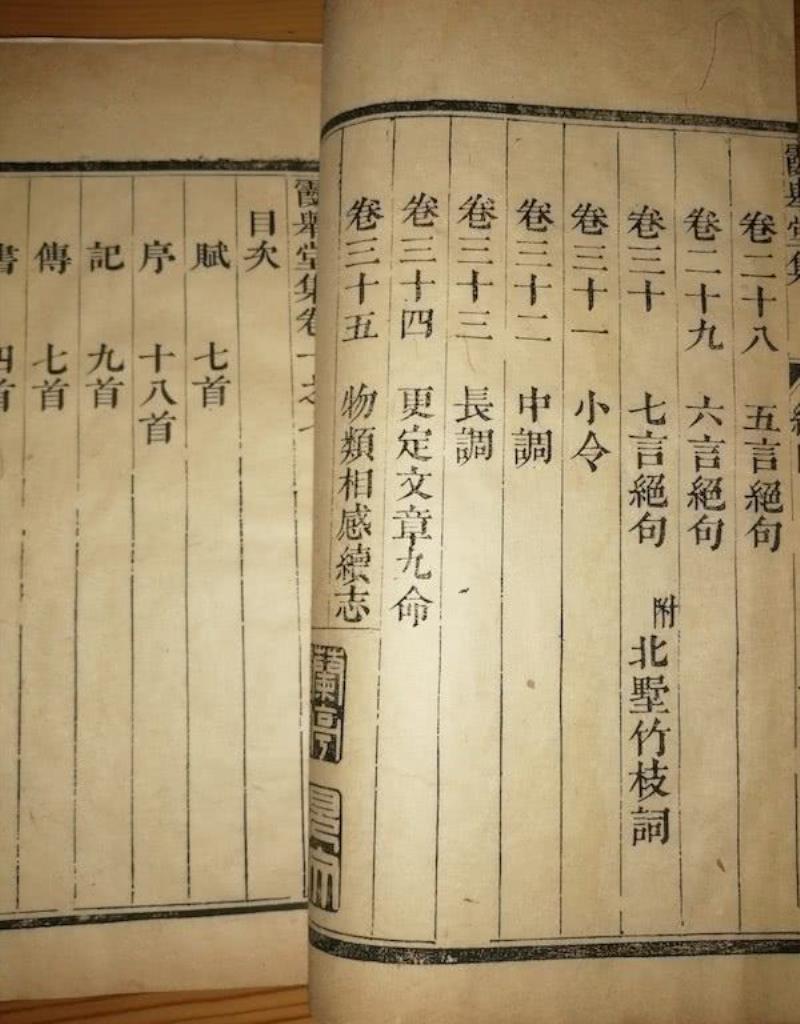 霞舉堂集
卷二十八 五言絕句
卷二十九 六言絕句
卷三十 七言絕句 附北墅竹枝詞
卷三十一 小令
卷三十二 中調
卷三十三 長調
卷三十四 更定文章九命
卷三十五 物類相感續志
霞舉堂集卷一之
目次
賦 七首
序 十八首
記 九首
傳 七首
書 四首